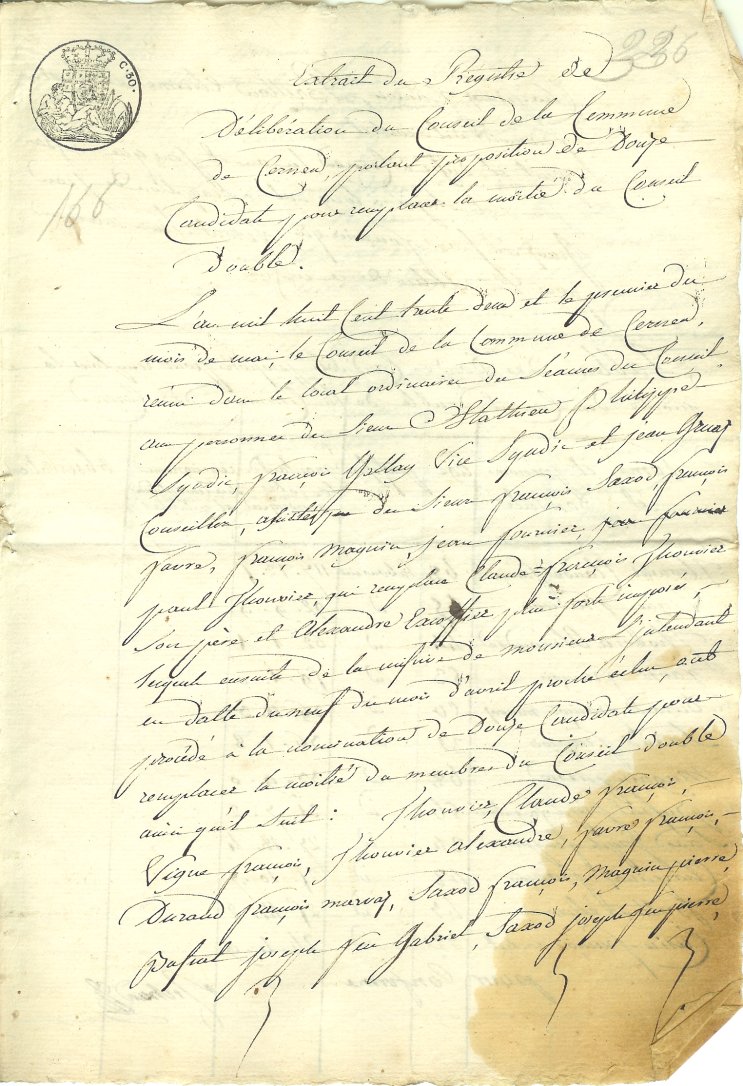 C. 50.
336
166
Extrait du Registre de
Délibération du Conseil de la Commune
de Cernex, portant proposition de Douze
Candidats pour remplacer la moitié du Conseil
double.
L'an mil huit Cent trente deux et le premier du
mois de mai, le Conseil de la Commune de Cernex,
réuni dans le local ordinaire des Séances du Conseil
aux personnes des Sieurs Mathieu Philippe
Syndic, françois Vice Syndic et jean
Conseiller, assistés des Sieurs françois Saxod, françois
favre, françois Magnin, jean fournier, jean fournier
paul Thouvier, qui remplace Claude-françois Thouvier
son père et Alexandre Excoffier plus forts imposés,
lequel ensuite de la missive de monsieur l'intendant
en datte du neuf du mois d'avril proche échu, ont
procédé à la nomination de Douze Candidats pour
remplacer la moitié des membres du Conseil double
ainsi qu'il suit : Thouvier, Claude françois,
Vigne françois, Thouvier Alexandre, favre françois,
Durand françois marie, Saxod françois, Magnin pierre,
pascal joseph feu Gabriel, Saxod joseph feu pierre,